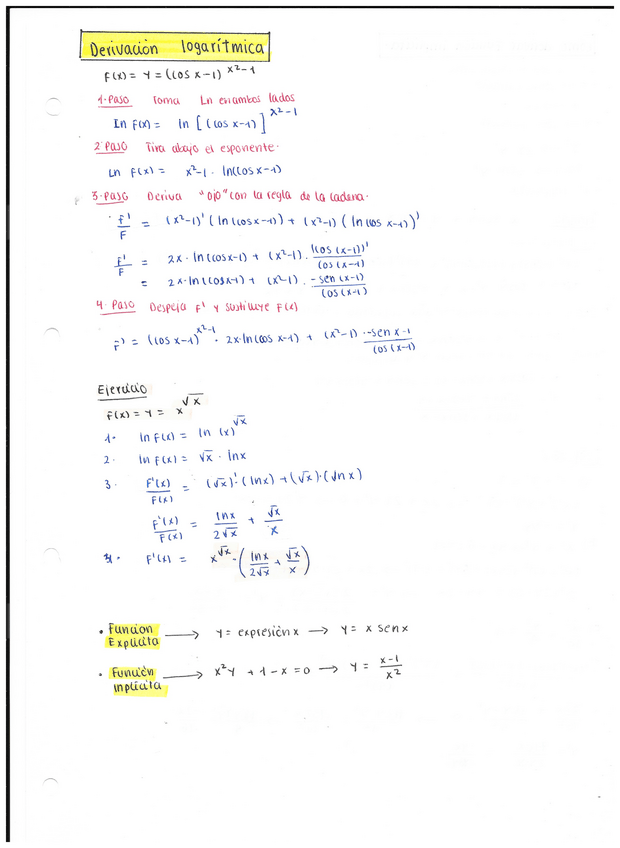 Derivación logarítmica
F(x) = Y = (cos x-1) ^ x²-1
1·Paso Toma Ln en ambos lados
ln F(x) = ln [(cos x-1)] ^ x²-1
2·Paso Tira abajo el esponente·
Ln F(x) = x²-1 · ln(cos x-1)
3·Paso Deriva "ojo" con la regla de la cadena·
f'/F = (x²-1)' (ln(cos x-1)) + (x²-1) (ln(cos x-1))'
f'/F = 2x · ln(cos x-1) + (x²-1) · (cos(x-1))'/cos(x-1)
= 2x·ln(cos x-1) + (x²-1) · -sen(x-1)/cos(x-1)
4·Paso Despeja F' y sustituye F(x)
F' = (cos x-1)^x²-1 · 2x·ln(cos x-1) + (x²-1) · -sen x-1/cos(x-1)
Ejercicio
F(x) = Y = x^√x
1· ln F(x) = ln (x)^√x
2· ln F(x) = √x · lnx
3· F'(x)/F(x) = (√x)'·(lnx) + (√x)·(lnx)
F'(x)/F(x) = lnx/2√x + √x/x
4· F'(x) = x^√x · (lnx/2√x + √x/x)
• Funcion Explícita → Y = expresión x → Y = x senx
• Función inplícita → x²y + 1 - x = 0 → Y = x-1/x²